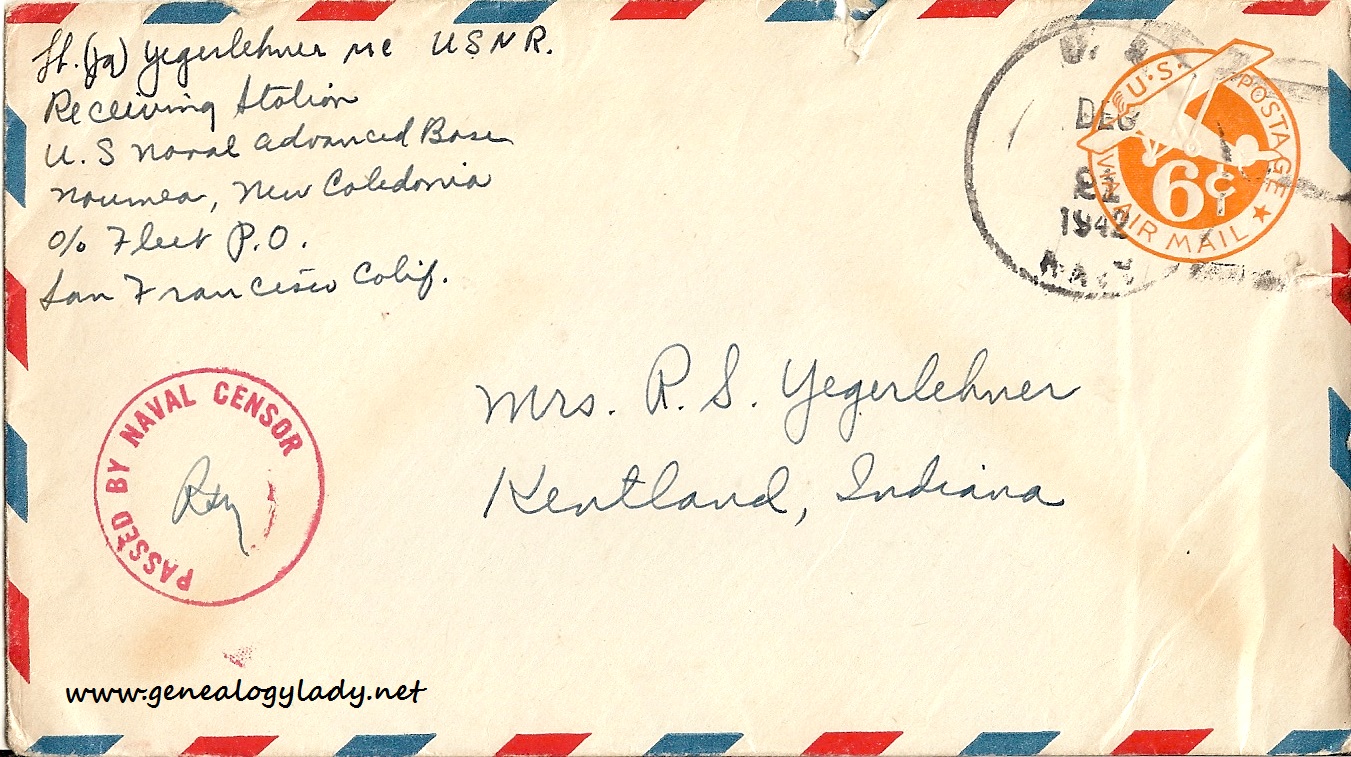 Lt. (jg) Yegerlehner MC USNR.
Receiving Station
U.S Naval Advanced Base
Noumea, New Caledonia
c/o Fleet P.O.
San Francisco Calif.
U.S. POSTAGE
VIA AIR MAIL
6¢
U.S.
DEC
21
1942
NAVY
Mrs. R. S. Yegerlehner
Kentland, Indiana
PASSED BY NAVAL CENSOR
www.genealogylady.net